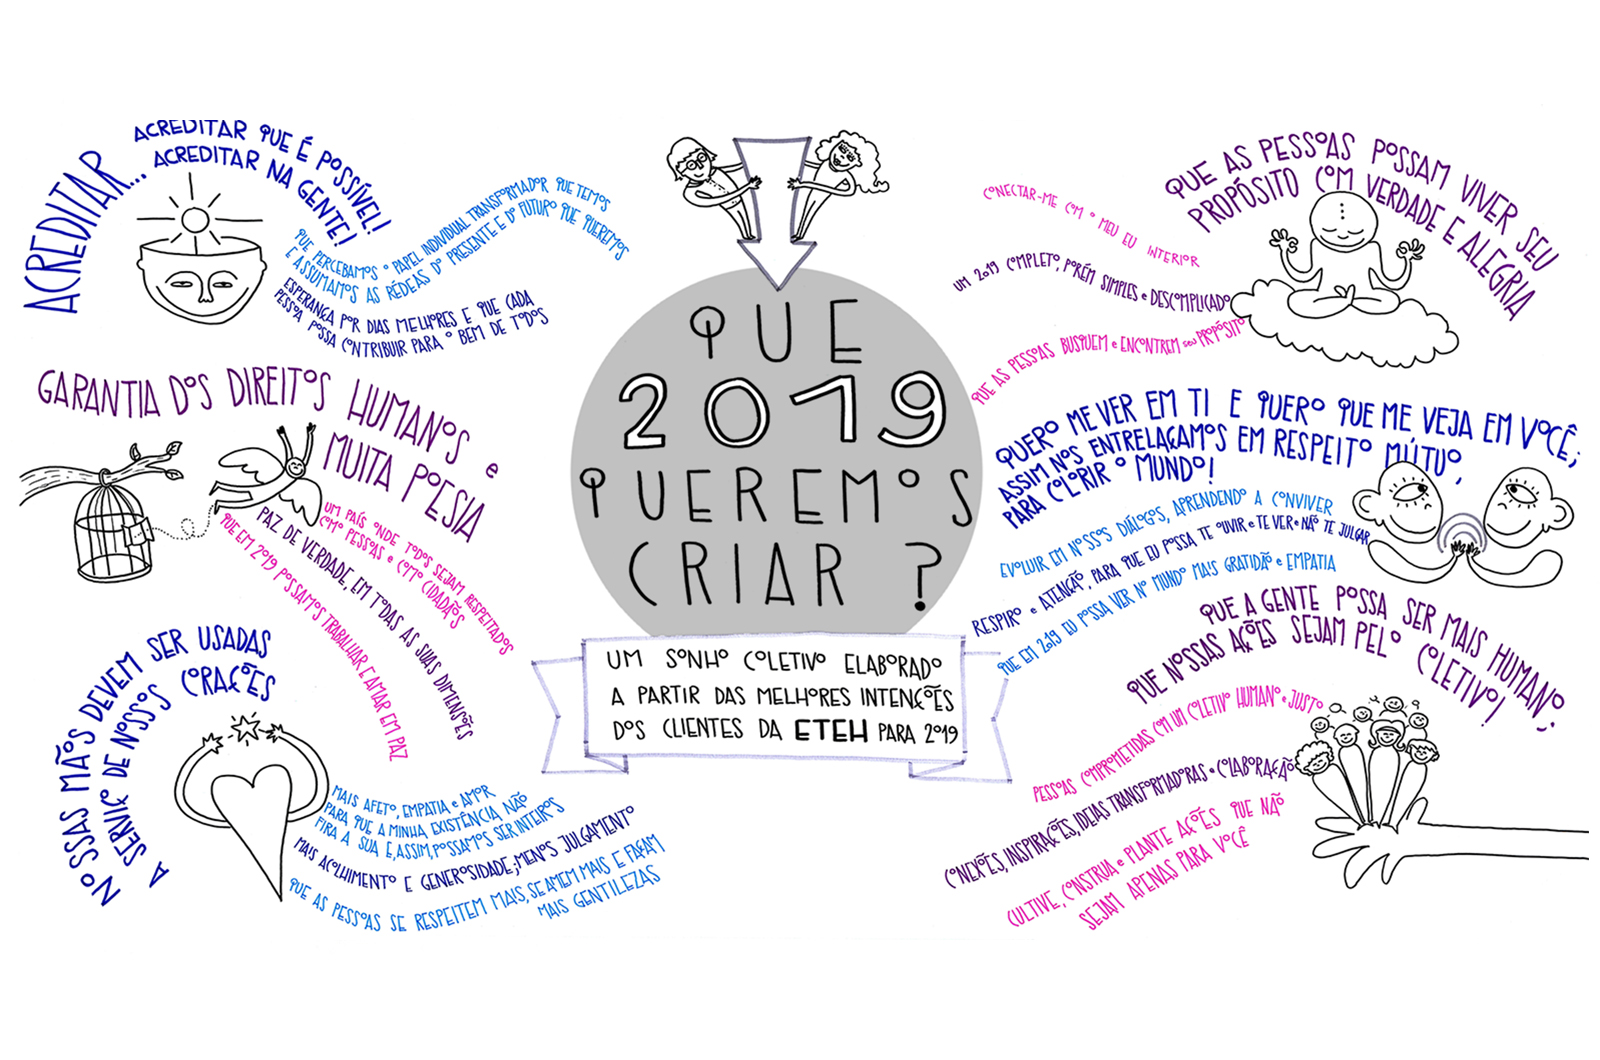 QUE
2019
QUEREMOS
CRIAR?
UM SONHO COLETIVO ELABORADO
A PARTIR DAS MELHORES INTENÇÕES
DOS CLIENTES DA ETEH PARA 2019
ACREDITAR...
ACREDITAR QUE É POSSÍVEL!
ACREDITAR NA GENTE!
QUE PERCEBAMOS O PAPEL INDIVIDUAL TRANSFORMADOR QUE TEMOS
E ASSUMAMOS AS RÉDEAS DO PRESENTE E DO FUTURO QUE QUEREMOS
ESPERANÇA POR DIAS MELHORES E QUE CADA
PESSOA POSSA CONTRIBUIR PARA O BEM DE TODOS
GARANTIA DOS DIREITOS HUMANOS e
MUITA POESIA
UM PAÍS ONDE TODOS SEJAM RESPEITADOS
COMO PESSOAS e COMO CIDADÃOS
PAZ DE VERDADE, EM TODAS AS SUAS DIMENSÕES
QUE EM 2019 POSSAMOS TRABALHAR E AMAR EM PAZ
NOSSAS MÃOS DEVEM SER USADAS
A SERVIÇO DE NOSSOS CORAÇÕES
MAIS AFETO, EMPATIA e AMOR
PARA QUE A MINHA EXISTÊNCIA NÃO
FIRA A SUA E, ASSIM, POSSAMOS SER INTEIROS
MAIS ACOLHIMENTO E GENEROSIDADE; MENOS JULGAMENTO
QUE AS PESSOAS SE RESPEITEM MAIS, SE AMEM MAIS E FAÇAM
MAIS GENTILEZAS
QUE AS PESSOAS POSSAM VIVER SEU
PROPÓSITO COM VERDADE E ALEGRIA
CONECTAR-ME COM O MEU EU INTERIOR
UM 2019 COMPLETO, PORÉM SIMPLES e DESCOMPLICADO
QUE AS PESSOAS BUSQUEM e ENCONTREM seu PROPÓSITO
QUERO ME VER EM TI E QUERO QUE ME VEJA EM VOCÊ;
ASSIM NOS ENTRELAÇAMOS EM RESPEITO MÚTUO,
PARA COLORIR O MUNDO!
EVOLUIR EM NOSSOS DIÁLOGOS, APRENDENDO A CONVIVER
RESPIRO e ATENÇÃO, PARA QUE EU POSSA TE OUVIR e TE VER e NÃO TE JULGAR
QUE EM 2019 EU POSSA VER NO MUNDO MAIS GRATIDÃO e EMPATIA
QUE A GENTE POSSA SER MAIS HUMANO;
QUE NOSSAS AÇÕES SEJAM PELO COLETIVO!
PESSOAS COMPROMETIDAS COM UM COLETIVO HUMANO e JUSTO
CONEXÕES, INSPIRAÇÕES, IDEIAS TRANSFORMADORAS e COLABORAÇÃO
CULTIVE, CONSTRUA e PLANTE AÇÕES QUE NÃO
SEJAM APENAS PARA VOCÊ